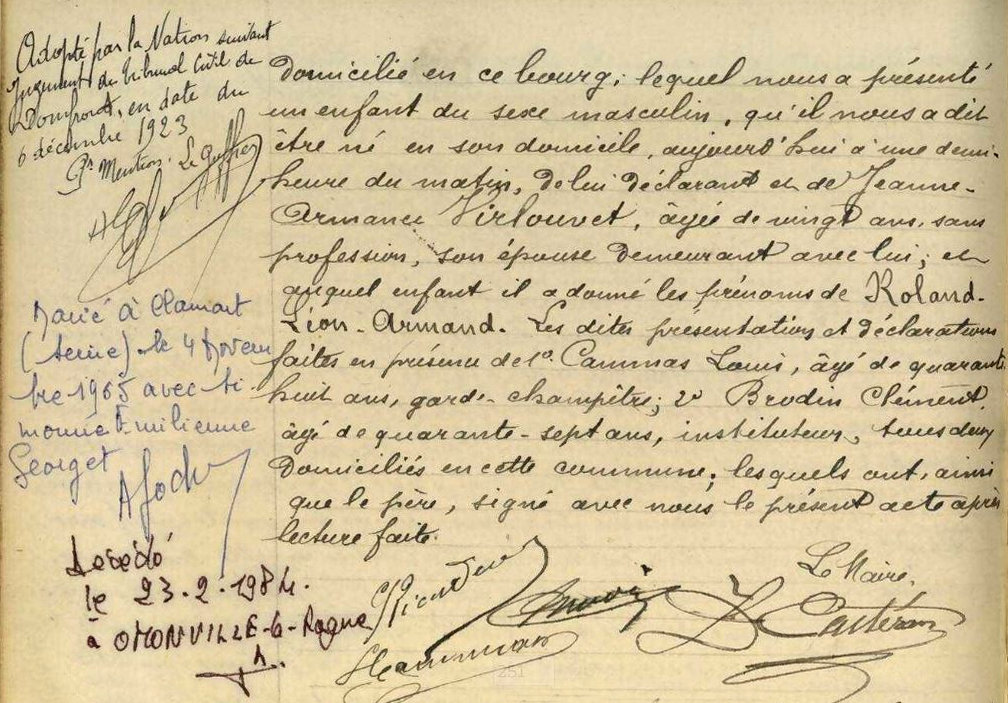 Adopté par la Nation suivant
jugement du tribunal Civil de
Domfront, en date du
6 décembre 1923
Pr Mention. Le Greffier
Marié à Clamart
(Seine). le 4 Novem
bre 1965 avec Si
monne Emilienne
Georget
Décédé
le 23.2.1984.
à OMONVILLE-la-Rogue
domicilié en ce bourg; lequel nous a présenté
un enfant du sexe masculin, qu'il nous a dit
être né en son domicile, aujourd'hui à une demi-
heure du matin, de lui déclarant et de Jeanne-
Armance Virlouvet, âgée de vingt ans, sans
profession, son épouse demeurant avec lui; et
auquel enfant il a donné les prénoms de Roland-
Léon-Armand. Les dites présentation et déclarations
faites en présence de 1º Cammas Louis, âgé de quarante
huit ans, garde-champêtre; 2º Brodin Clément
âgé de quarante-sept ans, instituteur, tous deux
domiciliés en cette commune; lesquels ont, ainsi
que le père, signé avec nous le présent acte après
lecture faite.
Le Maire,
Cammas
251